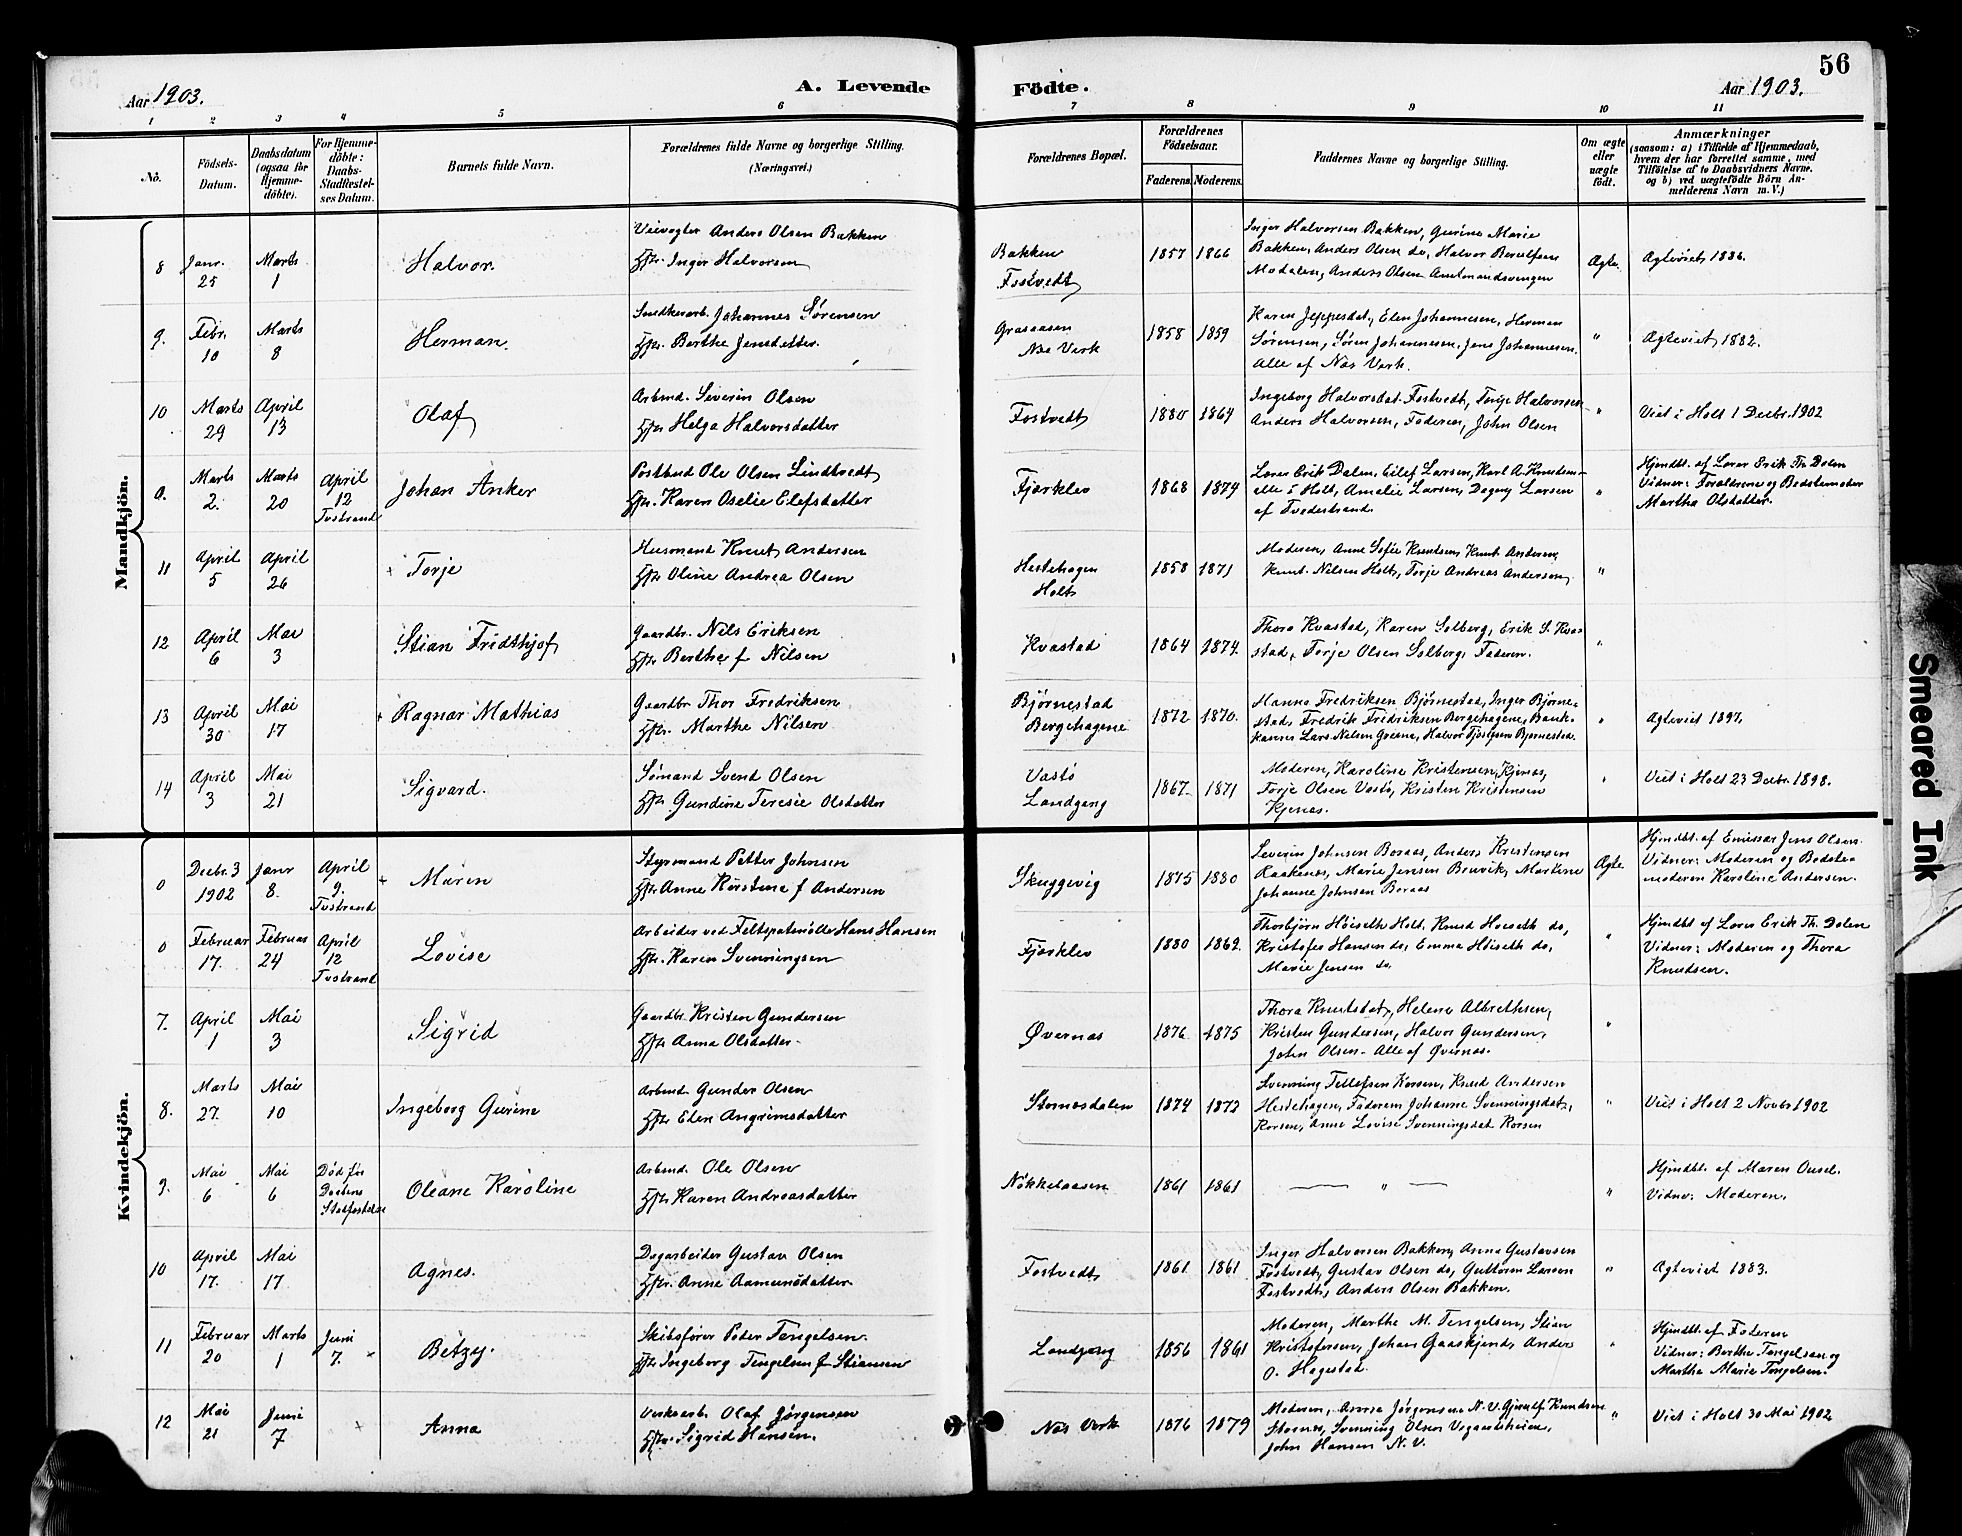 56
Aar 1903. A. Levende Födte. Aar 1903.
1 2 3 4 5 6 7 8 9 10 11
No.
Födsels-Datum.
Daabsdatum (ogsaa for Hjemmedöbte).
For Hjemmedöbte: Daabs-Stadfæstelses Datum.
Barnets fulde Navn.
Forældrenes fulde Navne og borgerlige Stilling. (Næringsvei.)
Forældrenes Bopæl.
Forældrenes Födselsaar.
Faderens. Moderens.
Faddernes Navne og borgerlige Stilling.
Om ægte eller uægte födt.
Anmærkninger
(saasom: a) i Tilfælde af Hjemmedaab, hvem der har forrettet samme, med Tilföielse af to Daabsvidners Navne. og b) ved uægtefödte Börn Anmelderens Navn m. V.)
Mandkjön.
8 Janr. 25 Marts 1 Halvor.
Veivogter Anders Olsen Bakken
Hstr. Inger Halvorsen
Bakken Fostvedt 1857 1866
Inger Halvorsen Bakken, Gurine Marie
Bakken, Anders Olsen do, Halvor Berulfsen
Modalen, Anders Olsen Amtmandsvingen
Ægte. Ægteviet 1886.
9. Febr. 10 Marts 8 Herman.
Snedkerarb. Johannes Sørensen
Hstr. Berthe Jensdatter.
Graaasen Næs Verk 1858 1859
Karen Jeppesdat., Elen Johannesen, Herman
Sørensen, Søren Johannesen, Jens Johannesen.
Alle af Næs Verk.
" Ægteviet 1882.
10 Marts 29 April 13 Olaf
Arbmd. Severin Olsen
Hstr. Helga Halvorsdatter
Fostvedt 1880 1864
Ingeborg Halvorsdat. Fostvedt, Torje Halvorsen
Anders Halvorsen, Faderen, John Olsen
" Viet i Holt 1 Decbr. 1902
0. Marts 2. Marts 20 April 12 Tvstrand Johan Anker
Postbud Ole Olsen Lindtvedt
Hstr. Karen Oselie Elefsdatter
Fjærklev 1868 1874
Lærer Erik Dalen, Eilef Larsen, Karl A. Knudsen
alle i Holt, Amalie Larsen, Dagny Larsen
af Tvedestrand.
" Hjmdbt. af Lærer Erik Th. Dalen
Vidner: Forældrene og Bedstemoder
Martha Olsdatter.
11 April 5 April 26 + Torje
Husmand Knut Andersen
Hstr Oline Andrea Olsen
Hestehagen Holt 1858 1871
Moderen, Anne Sofie Knutsen, Knut Andersen,
Knut Nilsen Holt, Torje Andreas Andersen,
"
12 April 6 Mai 3 Stian Fridthjof
Gaardbr. Nils Eriksen
Hstr Berthe f Nilsen
Kvastad 1864 1874.
Thora Kvastad, Karen Solberg, Erik S. Kvastad,
Torje Olsen Solberg, Faderen.
"
13 April 30 Mai 17 + Ragnar Mathias
Gaardbr Thor Fredriksen
Hstr. Marthe Nilsen
Bjørnestad Bergehagene 1872 1870.
Hanna Fredriksen Bjørnestad, Inger Bjørnestad,
Fredrik Fredriksen Bergehagene, Bankkasser
Lars Nilsen Greene, Halvor Tjøstsen Bjørnestad.
" Ægteviet 1897.
14 April 3 Mai 21 Sigvard.
Sømand Svend Olsen
Hstr Gundine Teresie Olsdatter
Vastø Landgang 1867 1871
Moderen, Karoline Kristensen Kjenæs,
Torje Olsen Vastø, Kristen Kristensen
Kjenæs.
" Viet i Holt 23 Decbr. 1898.
Kvindekjön.
0 Decbr. 3 1902 Janr 8. April 9. Tvstrand + Maren
Styrmand Petter Johnsen
Hstr. Anne Kirstine f Andersen
Skuggevig 1875 1880
Severin Johnsen Boraas, Anders Kristensen
Raakenes, Marie Jensen Bruvik, Martine
Johanne Johnsen Boraas
Ægte. Hjmdbt. af Emissær Jens Olsen.
Vidner: Moderen og Bedstemoderen
Karoline Andersen.
0 Februar 17. Februar 24 April 12 Tvstrand Lovise
Arbeider ved Feltspatmølle Hans Hansen
Hstr. Karen Svenningsen
Fjærklev 1880 1862.
Thorbjørn Høiseth Holt, Knud Høiseth do,
Kristofer Hansen do, Emma Høiseth do,
Marie Jensen do.
" Hjmdbt af Lærer Erik Th. Dalen
Vidner: Moderen og Thora
Knudsen.
7. April 1 Mai 3 Sigrid
Gaardbr. Kristen Gundersen
Hstr Anna Olsdatter.
Øvernæs 1876 1875
Thora Knutsdat., Helene Albrethsen,
Kristen Gundersen, Halvor Gundersen,
John Olsen. Alle af Øvernæs.
"
8. Marts 27. Mai 10 Ingeborg Gurine
Arbmd. Gunder Olsen
Hstr Elen Angrimsdatter
Stomesdalen 1874 1872
Svenning Tellefsen Korsen, Knud Andersen
Hestehagen, Faderen, Johanne Svenningsdat.,
Korsen, Anne Lovise Svenningsdat Korsen
" Viet i Holt 2 Novbr 1902
9. Mai 6 Mai 6 Død før Daabens Stadfæstelse Oleane Karoline
Arbmd. Ole Olsen
Hstr Karen Andreasdatter
Nökkelaasen 1861 1861
— " —
" Hjmdbt. af Maren Ousel.
Vidne: Moderen.
10 April 17. Mai 17 Agnes.
Dagarbeider Gustav Olsen
Hstr. Anne Aamundsdatter
Fostvedt 1861 1861
Inger Halvorsen Bakken, Anna Gustavsen
Fostvedt, Gustav Olsen do, Guttorm Larsen
Fostvedt, Anders Olsen Bakken.
" Ægteviet 1883.
11 Februar 20 Marts 1 Juni 7. Betzy.
Skibsfører Peder Tengelsen.
Hstr Ingeborg Tengelsen f Stiansen
Landgang 1856 1861
Moderen, Marthe M. Tengelsen, Stian
Kristofersen, Johan Gaaskjend, Anders
O. Hagestad.
" Hjmdbt. af Faderen
Vidner: Berthe Tengelsen og
Marthe Marie Tengelsen.
12 Mai 21 Juni 7 + Anna
Verksarb. Olaf Jørgensen
Hstr. Sigrid Hansen.
Næs Verk 1876 1879
Moderen, Anna Jørgensen N. V. Gjerulf Knudsen
Stomne, Svenning Olsen Vigaardsheien,
John Hansen N. V.
" Viet i Holt 30 Mai 1902
Smeared Ink